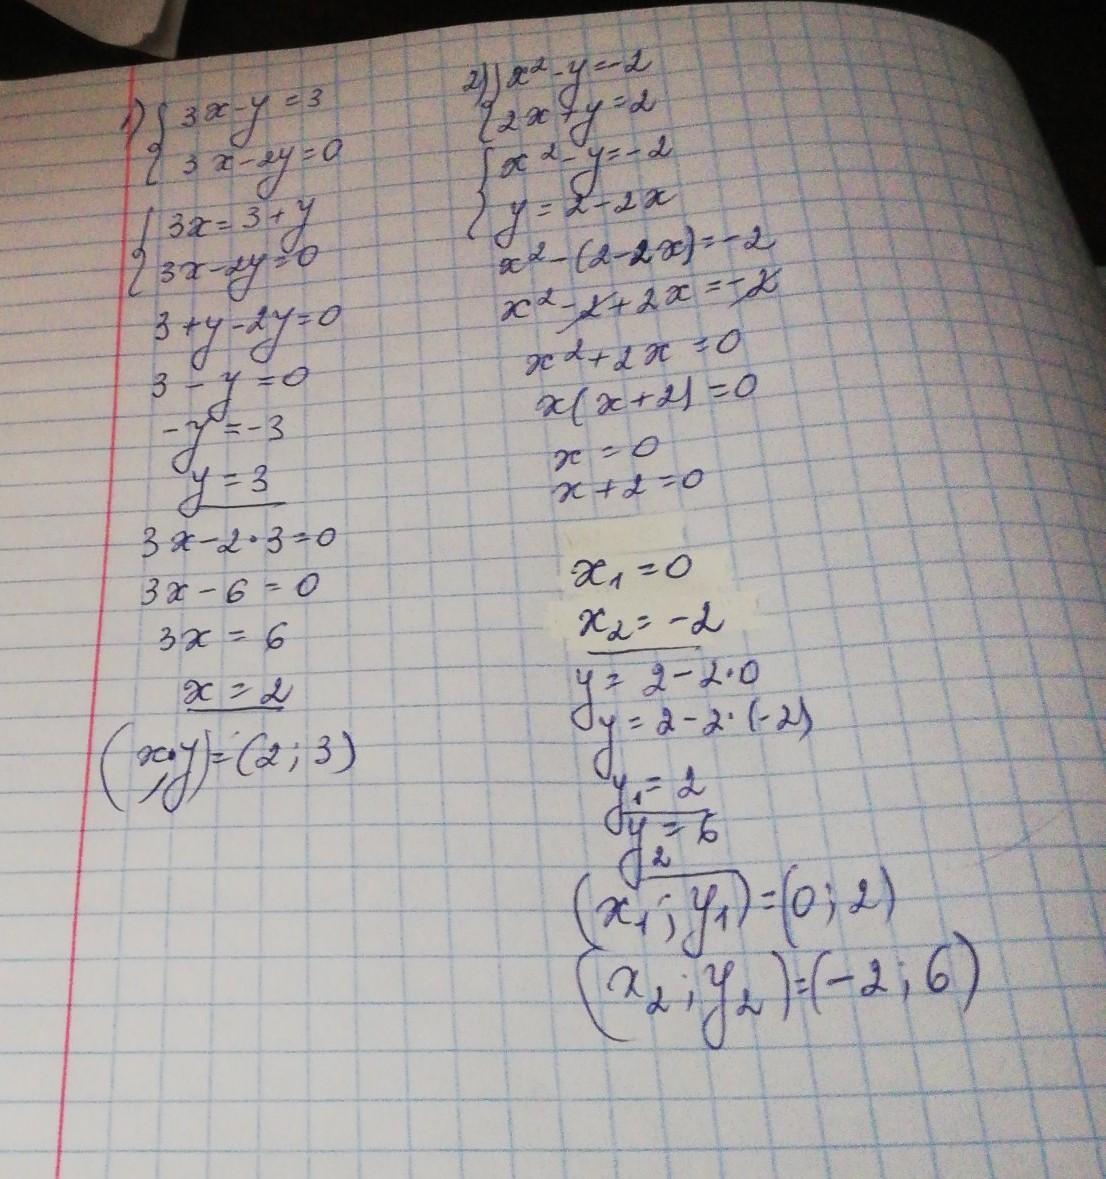 1) { 3x-y=3
3x-2y=0
{ 3x=3+y
3x-2y=0
3+y-2y=0
3-y=0
-y=-3
y=3
3x-2·3=0
3x-6=0
3x=6
x=2
(x;y)=(2;3)
2) { x²-y=-2
2x+y=2
{ x²-y=-2
y=2-2x
x²-(2-2x)=-2
x²-2+2x=-2
x²+2x=0
x(x+2)=0
x=0
x+2=0
x₁=0
x₂=-2
y=2-2·0
y=2-2·(-2)
y₁=2
y₂=6
(x₁;y₁)=(0;2)
(x₂;y₂)=(-2;6)